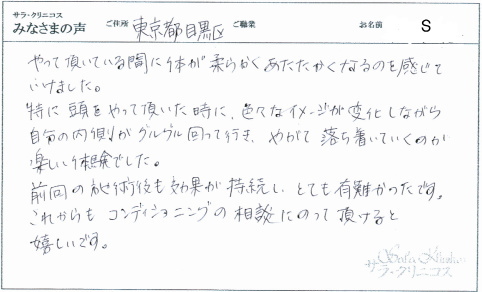 サラ・クリニコス
みなさまの声 ご住所 東京都目黒区 ご職業 お名前 S
やって頂いている間に体が柔らかくあたたかくなるのを感じて
いけました。
特に頭をやって頂いた時に、色々なイメージが変化しながら
自分の内側がグルグル回って行き、やがて落ち着いていくのが
楽しい体験でした。
前回の施術後も効果が持続し、とても有難かったです。
これからもコンディショニングの相談にのって頂けると
嬉しいです。
サラ・クリニコス